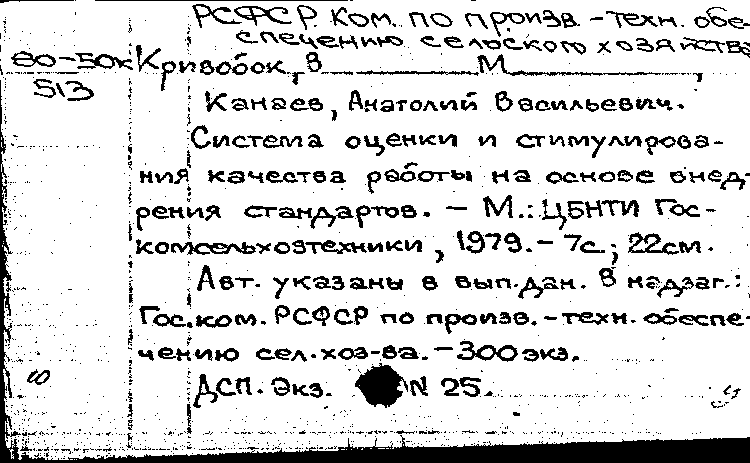 РСФСР. Ком. по произв.-техн. обе-
спечению сельского хозяйства
80-50к Кривобок, В М ,
513
Канаев, Анатолий Васильевич.
Система оценки и стимулирова-
ния качества работы на основе внед-
рения стандартов. - М.: ЦБНТИ Гос-
комсельхозтехники, 1979. - 7с.; 22см.
Авт. указаны в вып.дан. В надзаг.:
Гос.ком. РСФСР по произв.-техн. обеспе-
чению сел.хоз-ва. - 300экз.
ДСП. Экз. N 25.